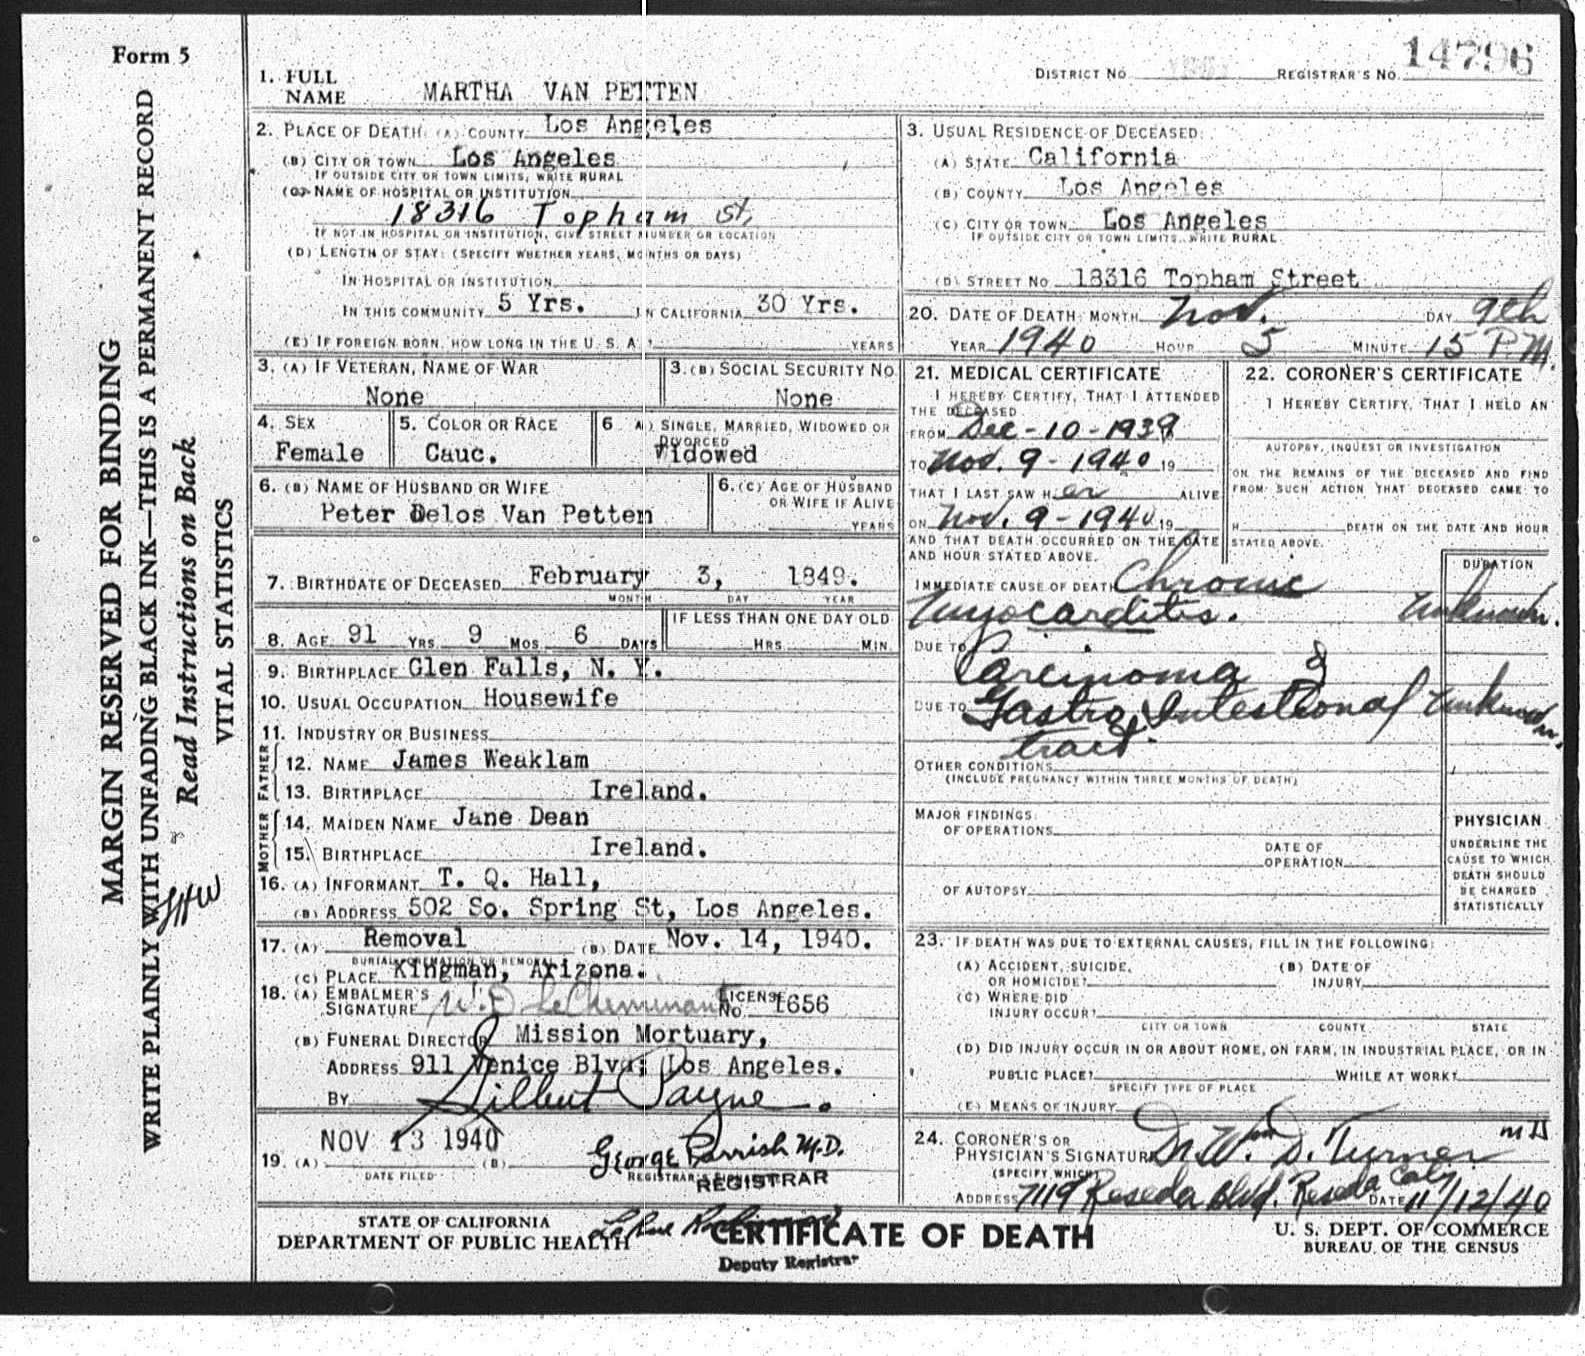 Form 5
MARGIN RESERVED FOR BINDING
WRITE PLAINLY WITH UNFADING BLACK INK—THIS IS A PERMANENT RECORD
Read Instructions on Back
VITAL STATISTICS
DISTRICT No. REGISTRAR'S No. 14796
1. FULL NAME MARTHA VAN PETTEN
2. PLACE OF DEATH: (A) COUNTY Los Angeles
(B) CITY OR TOWN Los Angeles
IF OUTSIDE CITY OR TOWN LIMITS, WRITE RURAL
(C) NAME OF HOSPITAL OR INSTITUTION
18316 Topham St,
IF NOT IN HOSPITAL OR INSTITUTION, GIVE STREET NUMBER OR LOCATION
(D) LENGTH OF STAY: (SPECIFY WHETHER YEARS, MONTHS OR DAYS)
IN HOSPITAL OR INSTITUTION
IN THIS COMMUNITY 5 Yrs. IN CALIFORNIA 30 Yrs.
(E) IF FOREIGN BORN, HOW LONG IN THE U. S. A.? YEARS
3. (A) IF VETERAN, NAME OF WAR
None
3. (B) SOCIAL SECURITY NO.
None
4. SEX
Female
5. COLOR OR RACE
Cauc.
6 (A) SINGLE, MARRIED, WIDOWED OR DIVORCED
Widowed
6. (B) NAME OF HUSBAND OR WIFE
Peter Delos Van Petten
6. (C) AGE OF HUSBAND OR WIFE IF ALIVE
YEARS
7. BIRTHDATE OF DECEASED February 3, 1849.
MONTH DAY YEAR
8. AGE 91 YRS. 9 MOS. 6 DAYS
IF LESS THAN ONE DAY OLD
HRS. MIN.
9. BIRTHPLACE Glen Falls, N. Y.
10. USUAL OCCUPATION Housewife
11. INDUSTRY OR BUSINESS
FATHER
12. NAME James Weaklam
13. BIRTHPLACE Ireland.
MOTHER
14. MAIDEN NAME Jane Dean
15. BIRTHPLACE Ireland.
16. (A) INFORMANT T. Q. Hall,
(B) ADDRESS 502 So. Spring St, Los Angeles.
17. (A) Removal (B) DATE Nov. 14, 1940.
BURIAL, CREMATION OR REMOVAL
(C) PLACE Kingman, Arizona.
18. (A) EMBALMER'S SIGNATURE W. D. LeCheminant LICENSE No. 1656
(B) FUNERAL DIRECTOR Mission Mortuary,
ADDRESS 911 Venice Blvd; Los Angeles.
BY Gilbert Payne.
19. (A) NOV 13 1940 (B) George Parrish M.D.
DATE FILED REGISTRAR'S
REGISTRAR
3. USUAL RESIDENCE OF DECEASED:
(A) STATE California
(B) COUNTY Los Angeles
(C) CITY OR TOWN Los Angeles
IF OUTSIDE CITY OR TOWN LIMITS, WRITE RURAL
(D) STREET NO. 18316 Topham Street
20. DATE OF DEATH: MONTH Nov. DAY 9th
YEAR 1940 HOUR 5 MINUTE 15 P.M.
21. MEDICAL CERTIFICATE
I HEREBY CERTIFY, THAT I ATTENDED
THE DECEASED
FROM Dec-10-1939
TO Nov. 9-1940 19
THAT I LAST SAW HER ALIVE
ON Nov. 9-1940 19
AND THAT DEATH OCCURRED ON THE DATE
AND HOUR STATED ABOVE.
22. CORONER'S CERTIFICATE
I HEREBY CERTIFY, THAT I HELD AN
AUTOPSY, INQUEST OR INVESTIGATION
ON THE REMAINS OF THE DECEASED AND FIND
FROM SUCH ACTION THAT DECEASED CAME TO
H DEATH ON THE DATE AND HOUR
STATED ABOVE.
DURATION
IMMEDIATE CAUSE OF DEATH Chronic
Myocarditis. Unknown.
DUE TO Carcinoma of
DUE TO Gastro, Intestional Unknown.
tract.
OTHER CONDITIONS
(INCLUDE PREGNANCY WITHIN THREE MONTHS OF DEATH)
MAJOR FINDINGS:
OF OPERATIONS
DATE OF OPERATION
OF AUTOPSY
PHYSICIAN
UNDERLINE THE
CAUSE TO WHICH
DEATH SHOULD
BE CHARGED
STATISTICALLY
23. IF DEATH WAS DUE TO EXTERNAL CAUSES, FILL IN THE FOLLOWING:
(A) ACCIDENT, SUICIDE, OR HOMICIDE?
(B) DATE OF INJURY
(C) WHERE DID INJURY OCCUR?
CITY OR TOWN COUNTY STATE
(D) DID INJURY OCCUR IN OR ABOUT HOME, ON FARM, IN INDUSTRIAL PLACE, OR IN
PUBLIC PLACE? WHILE AT WORK?
SPECIFY TYPE OF PLACE
(E) MEANS OF INJURY
24. CORONER'S OR PHYSICIAN'S SIGNATURE Dr. Wm. D. Turner MD
(SPECIFY WHICH)
ADDRESS 7119 Reseda Blvd. Reseda Calif DATE 11/12/40
STATE OF CALIFORNIA
DEPARTMENT OF PUBLIC HEALTH
CERTIFICATE OF DEATH
Deputy Registrar
U. S. DEPT. OF COMMERCE
BUREAU OF THE CENSUS